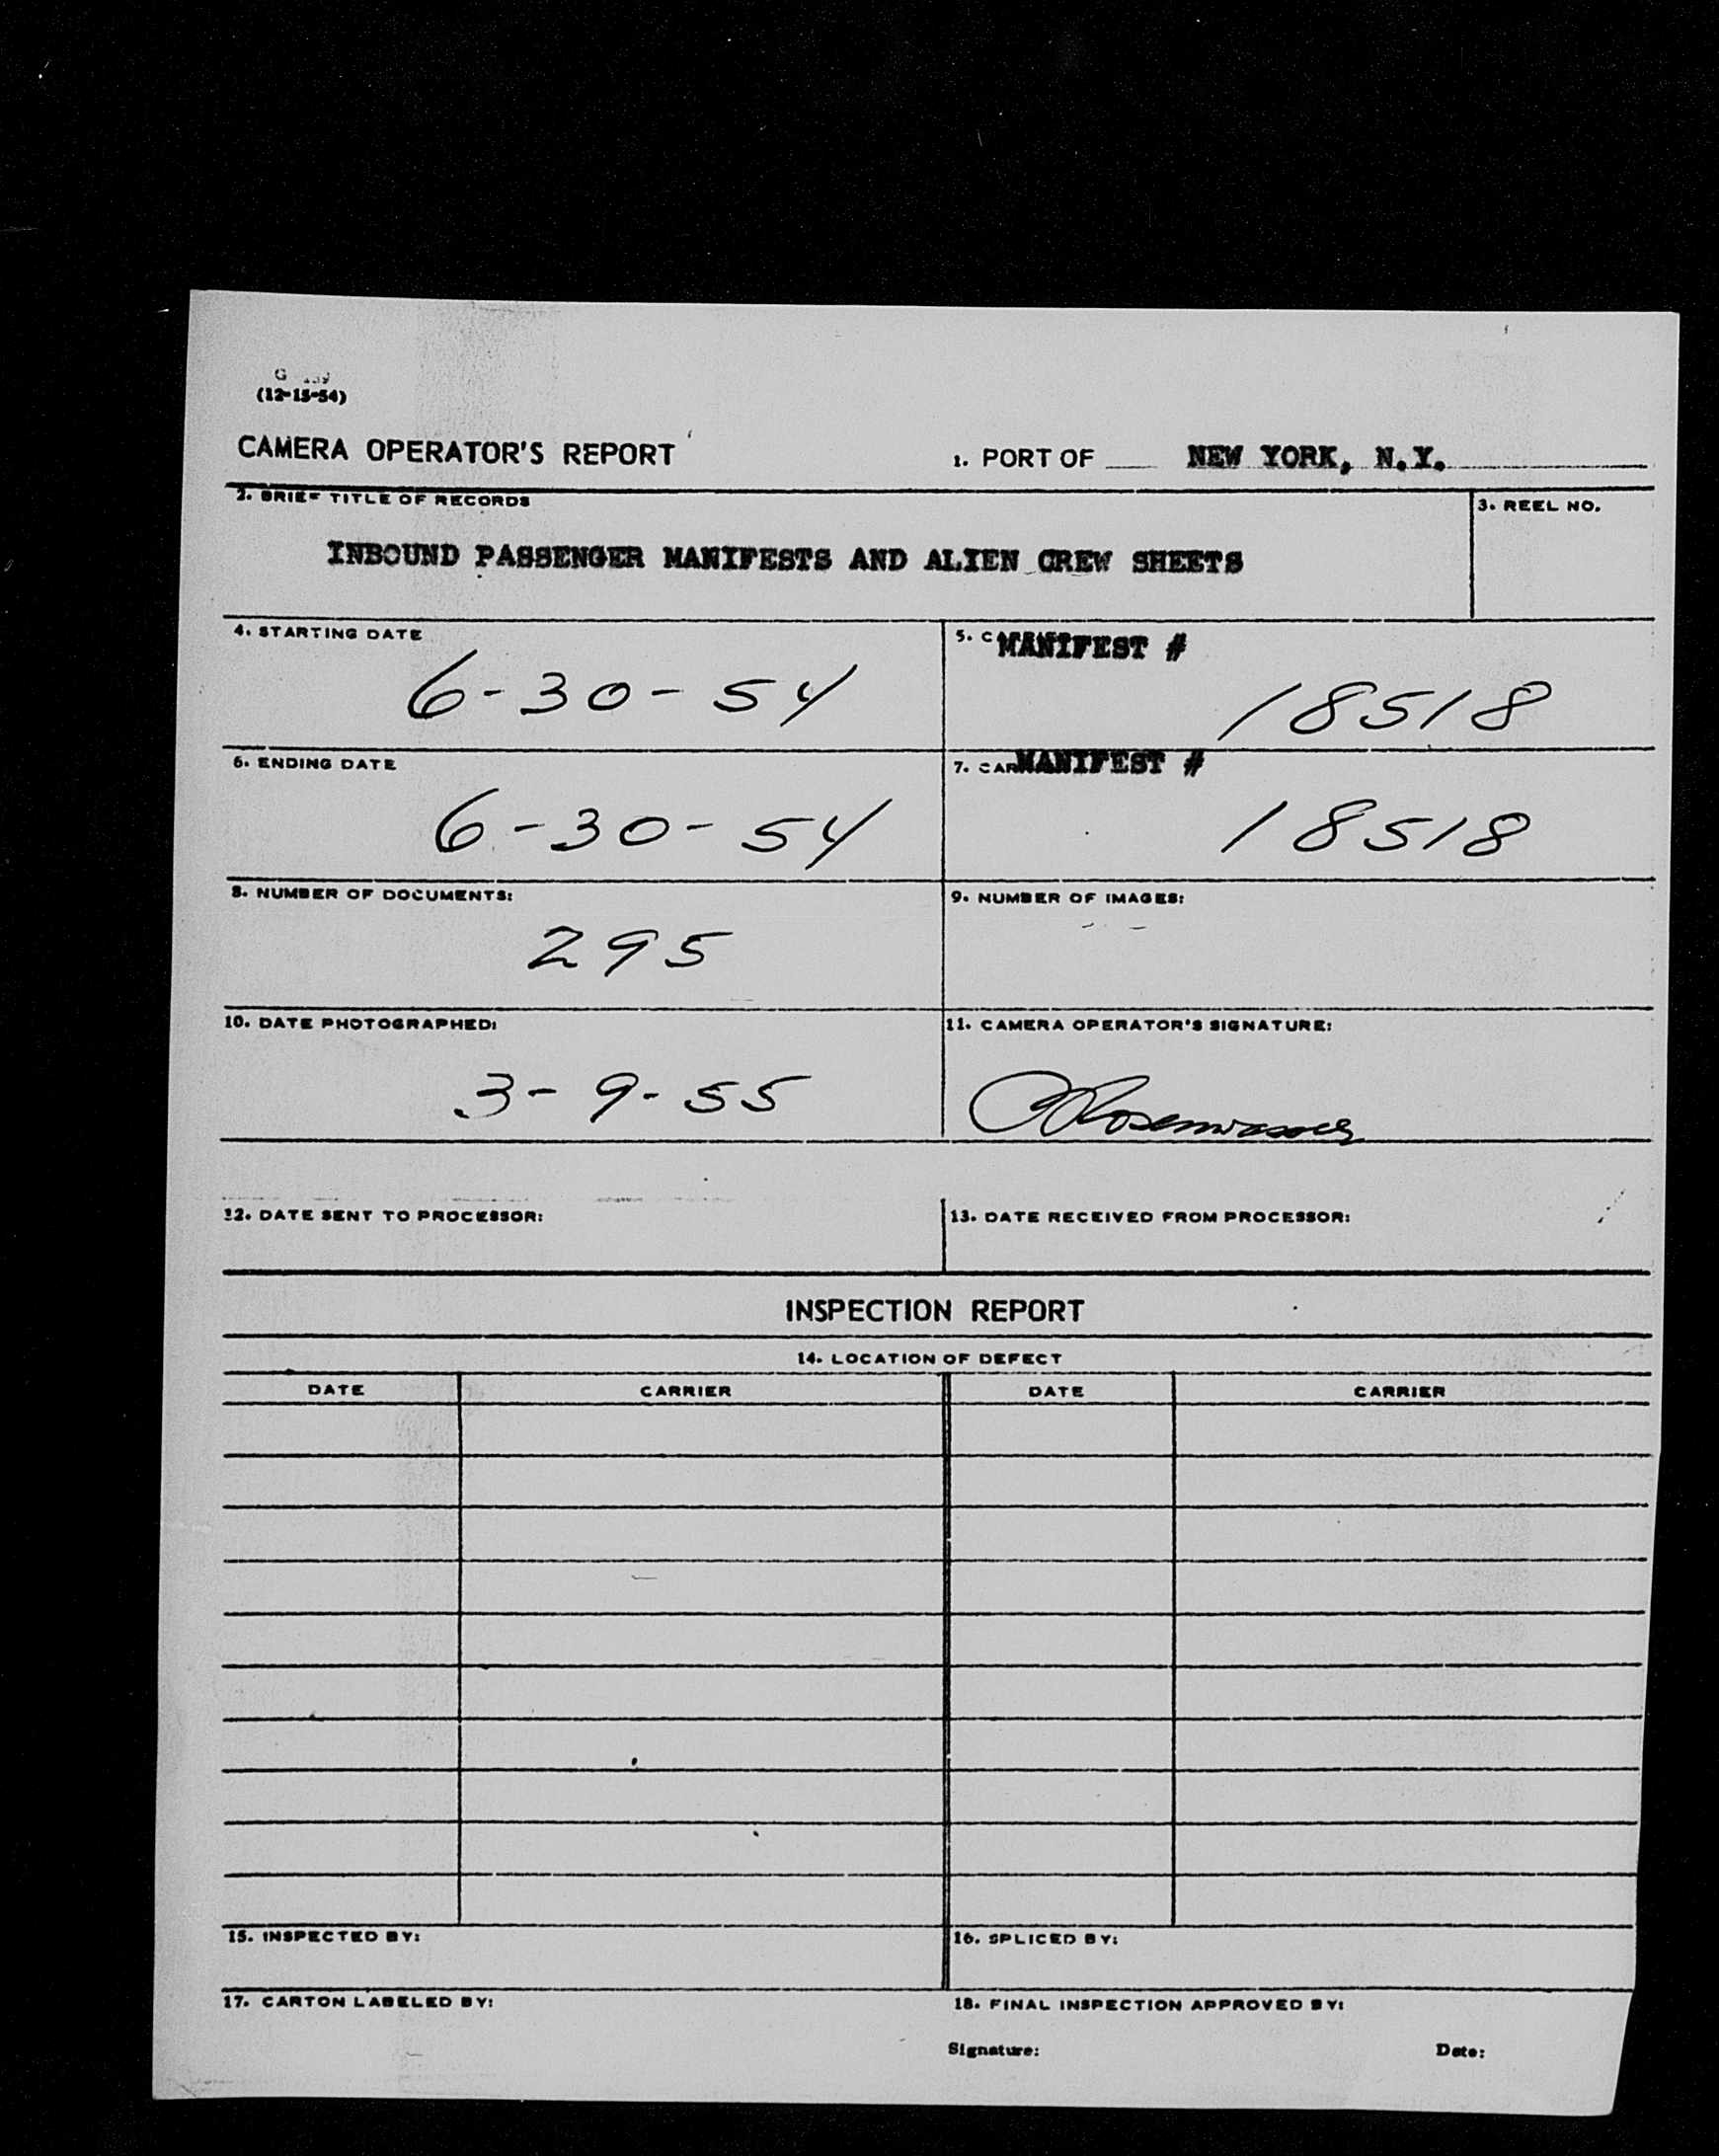 (12-15-54)
CAMERA OPERATOR'S REPORT
1. PORT OF NEW YORK, N.Y.
2. BRIEF TITLE OF RECORDS
3. REEL NO.
INBOUND PASSENGER MANIFESTS AND ALIEN CREW SHEETS
4. STARTING DATE
6-30-54
5. MANIFEST #
18518
6. ENDING DATE
6-30-54
7. MANIFEST #
18518
8. NUMBER OF DOCUMENTS:
295
9. NUMBER OF IMAGES:
10. DATE PHOTOGRAPHED:
3-9-55
11. CAMERA OPERATOR'S SIGNATURE:
12. DATE SENT TO PROCESSOR:
13. DATE RECEIVED FROM PROCESSOR:
INSPECTION REPORT
14. LOCATION OF DEFECT
DATE CARRIER DATE CARRIER
15. INSPECTED BY:
16. SPLICED BY:
17. CARTON LABELED BY:
18. FINAL INSPECTION APPROVED BY:
Signature: Date: